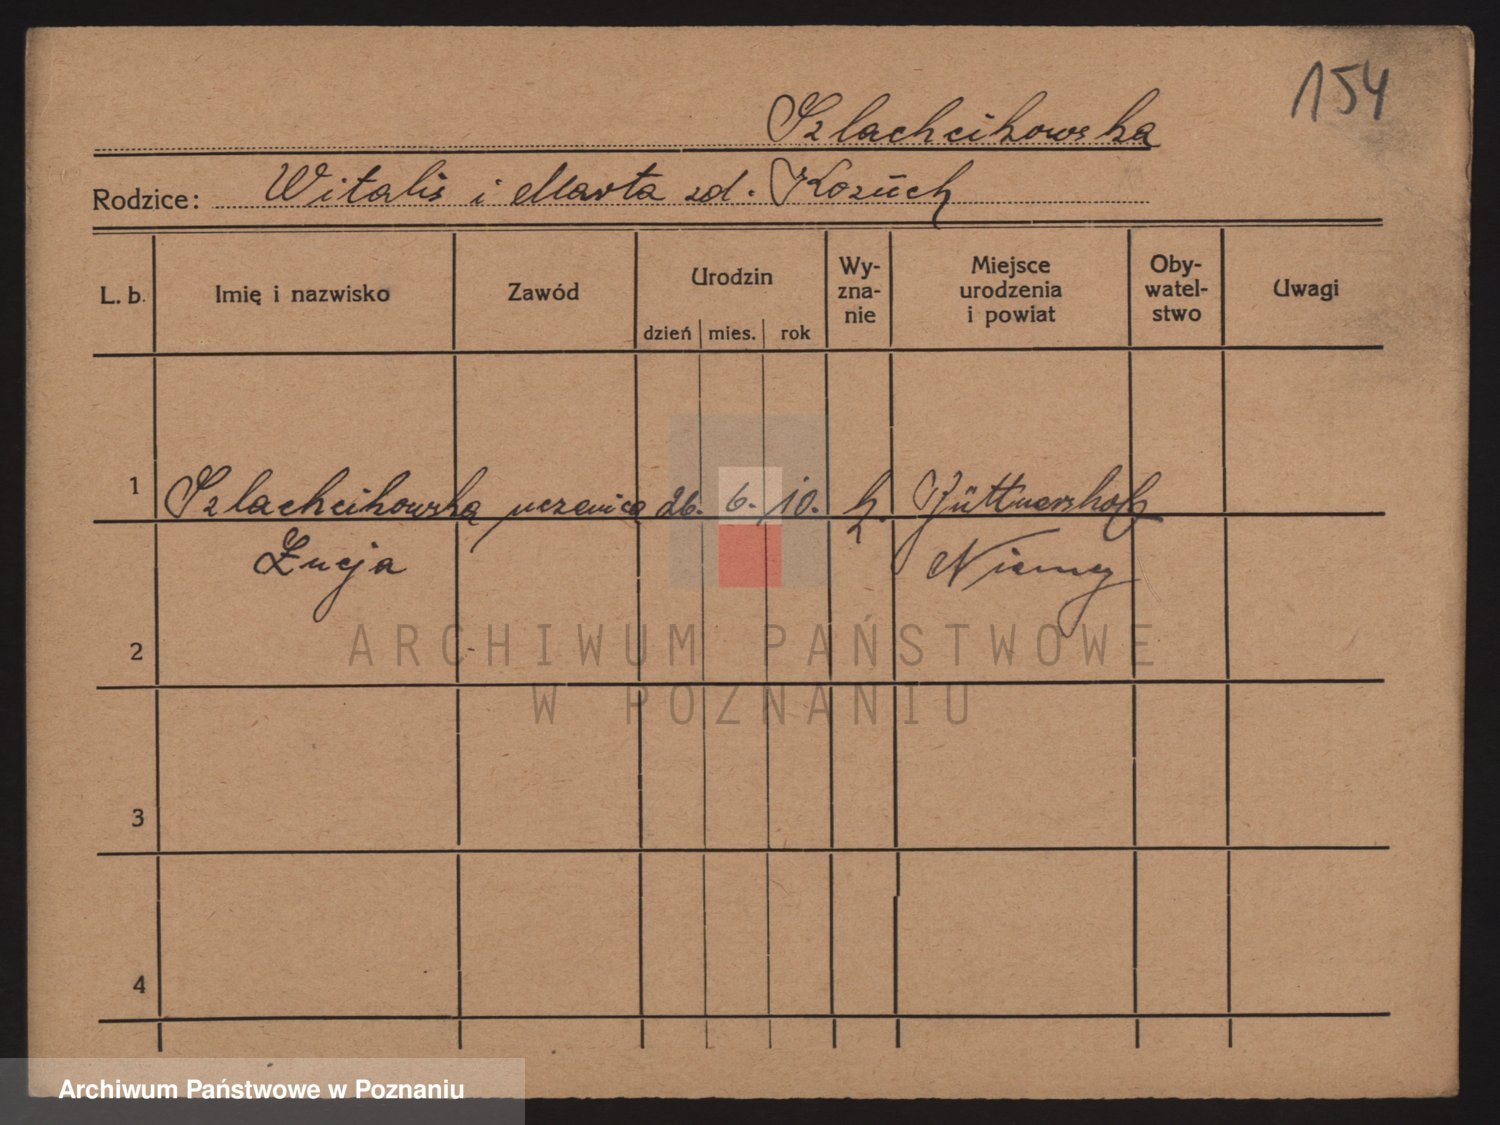 154
Szlachcikowska
Rodzice: Witalis i Marta zd. Kozuch
L. b. Imię i nazwisko Zawód Urodzin dzień mies. rok Wy-zna-nie Miejsce urodzenia i powiat Oby-watel-stwo Uwagi
1 Szlachcikowska uczenica 26. 6. 10. k.
Łucja Niemcy
2
ARCHIWUM PAŃSTWOWE
W POZNANIU
3
4
Archiwum Państwowe w Poznaniu